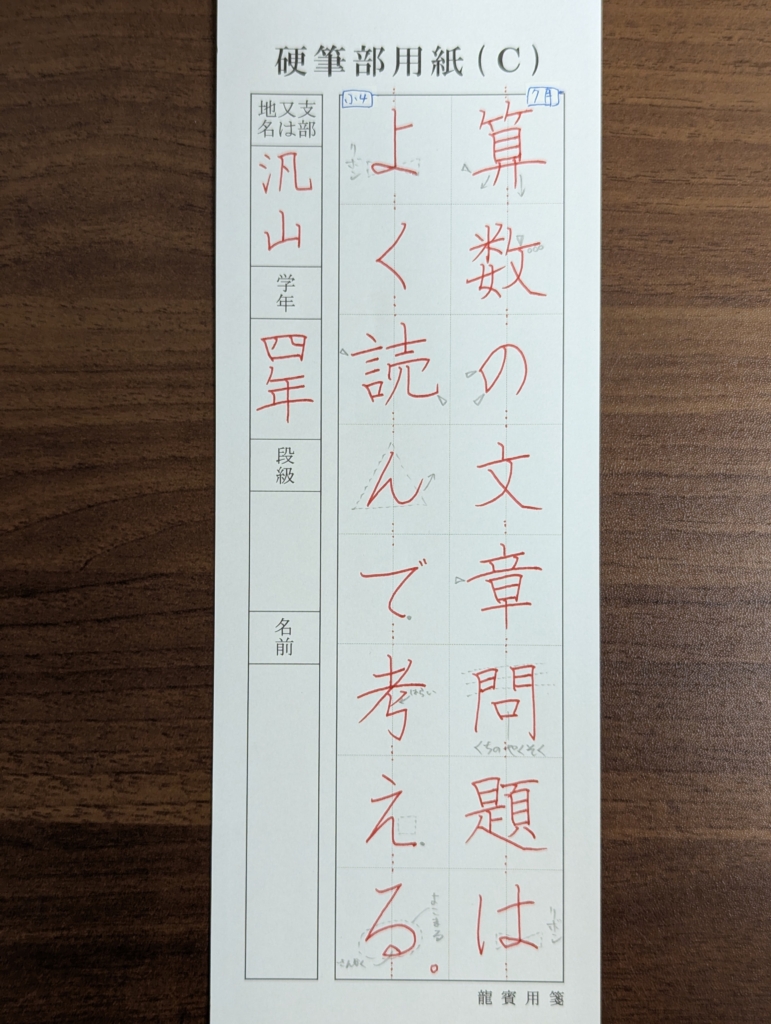 硬筆部用紙(C)
7月
算数の文章問題は
小4
よく読んで考える。
リボン
くちのやくそく
リボン
はらい
よこまる
さんかく
地名又は支部
汎山
学年
四年
段級
名前
龍賓用箋